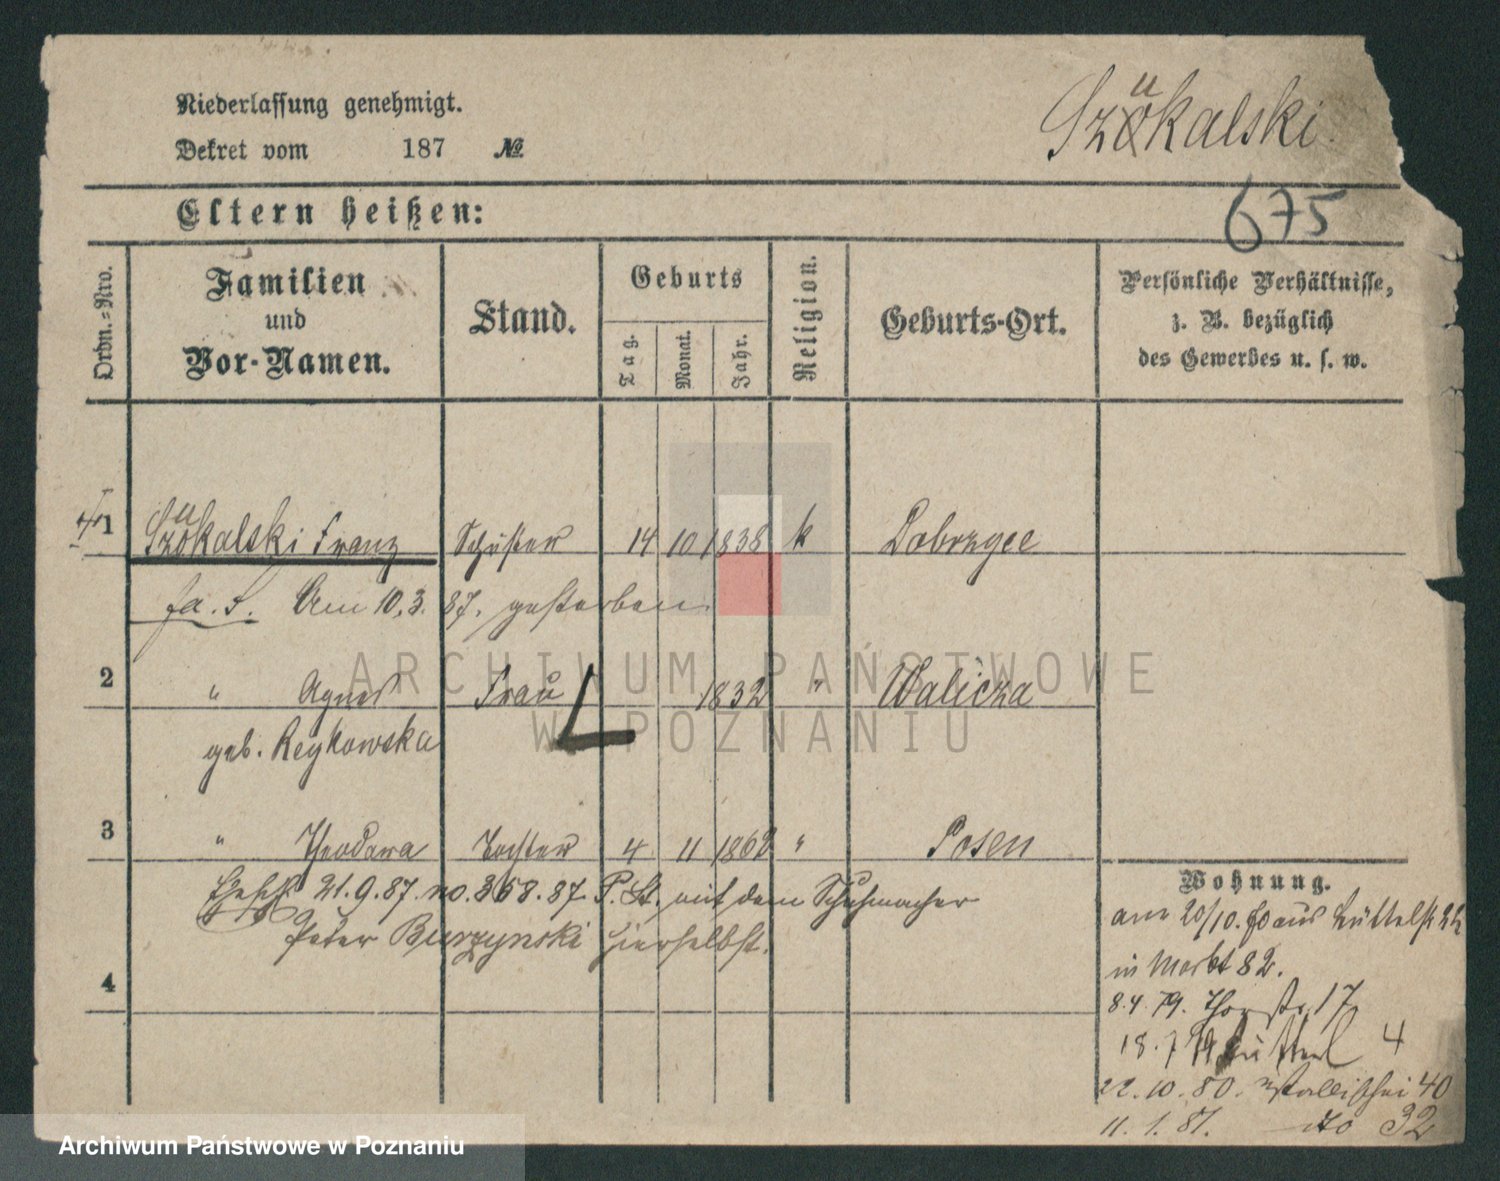 Niederlassung genehmigt.
Dekret vom 187 №
Szukalski.
Eltern heißen:
675
Ordn.-Nro.
Familien
und
Vor-Namen.
Stand.
Geburts
Tag.
Monat.
Jahr.
Religion.
Geburts-Ort.
Persönliche Verhältnisse,
z. B. bezüglich
des Gewerbes u. s. w.
1 Szukalski Franz Schuster 14 10 1838 k Dobrzyce
Am 10.3.87. gestorben.
2 " Agnes Frau 1832 " Walicza
geb. Reykowska
3 " Theodora Tochter 4 11 1862 " Posen
21.9.87. no. 358.87. P. St. mit dem Schuhmacher
Peter Burzynski hierselbst.
4
Wohnung.
am 20/10. aus
in Markt 82.
8.4.79. 17
18.7.79 4
22.10.80. Wallischei 40
11.1.81. dto 32
ARCHIWUM PAŃSTWOWE
W POZNANIU
Archiwum Państwowe w Poznaniu